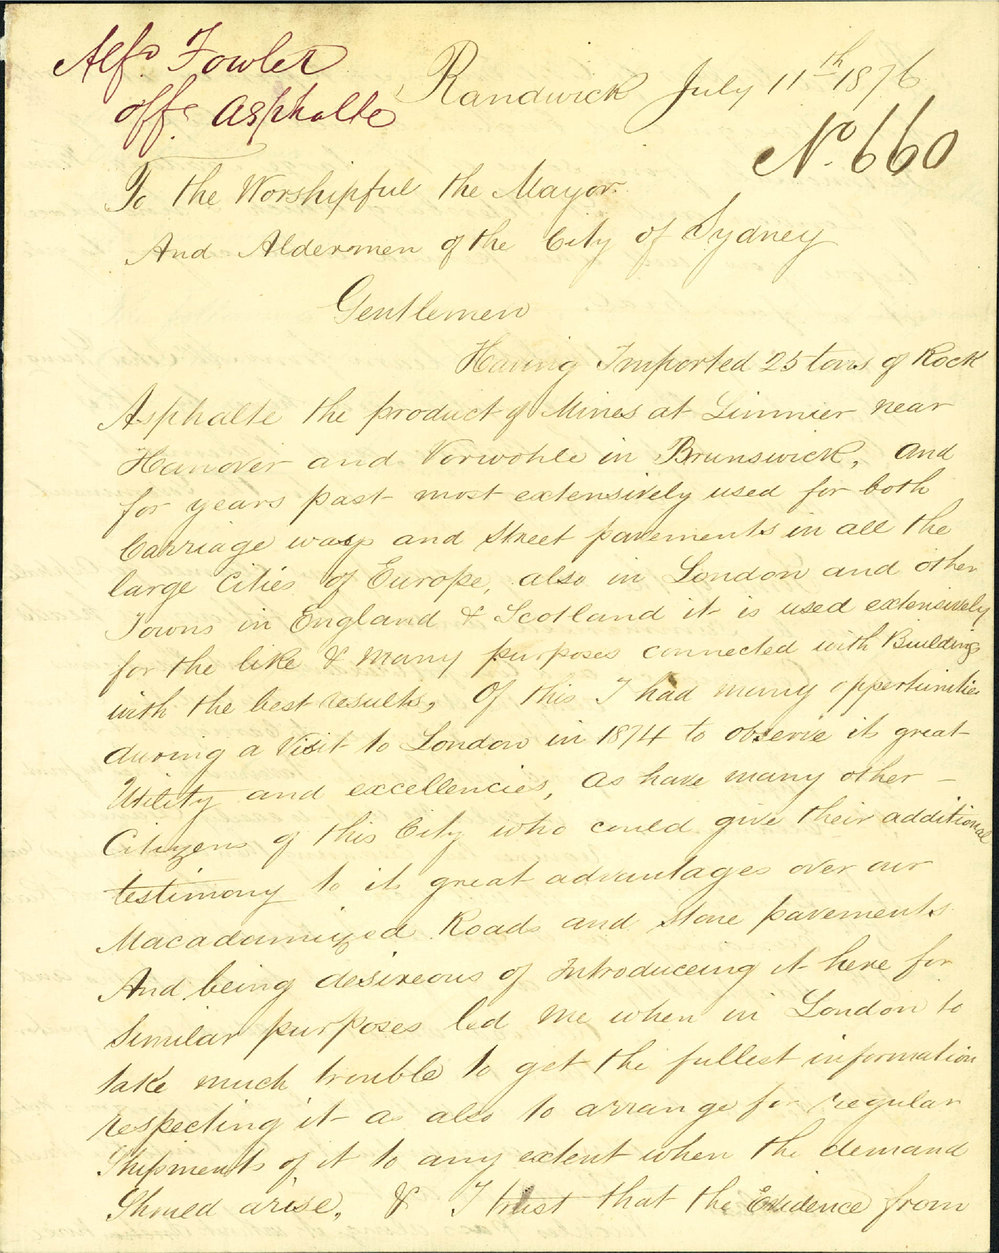 Alfd Fowler
offg Asphalte
Randwick July 11th 1876
No. 660
To the Worshipful the Mayor
And Aldermen of the City of Sydney
Gentlemen
Having Imported 25 tons of Rock
Asphalte the product of Mines at Limmer near
Hanover and Vorwohle in Brunswick, and
for years past most extensively used for both
Carriage ways and street pavements in all the
large Cities of Europe, also in London and other
Towns in England & Scotland it is used extensively
for the like & many purposes connected with Buildings
with the best results, Of this I had many opportunities
during a visit to London in 1874 to observe it great
Utility and excellencies, as have many other –
Citizens of this City who could give their additional
testimony to it great advantages over our
Macadamized Roads and stone pavements
And being desireous of Introduceing it here for
Similar purposes led me when in London to
take much trouble to get the fullest information
respecting it as also to arrange for regular
Shipments of it to any extent when the demand
Should arise, & I trust that the Evidence from